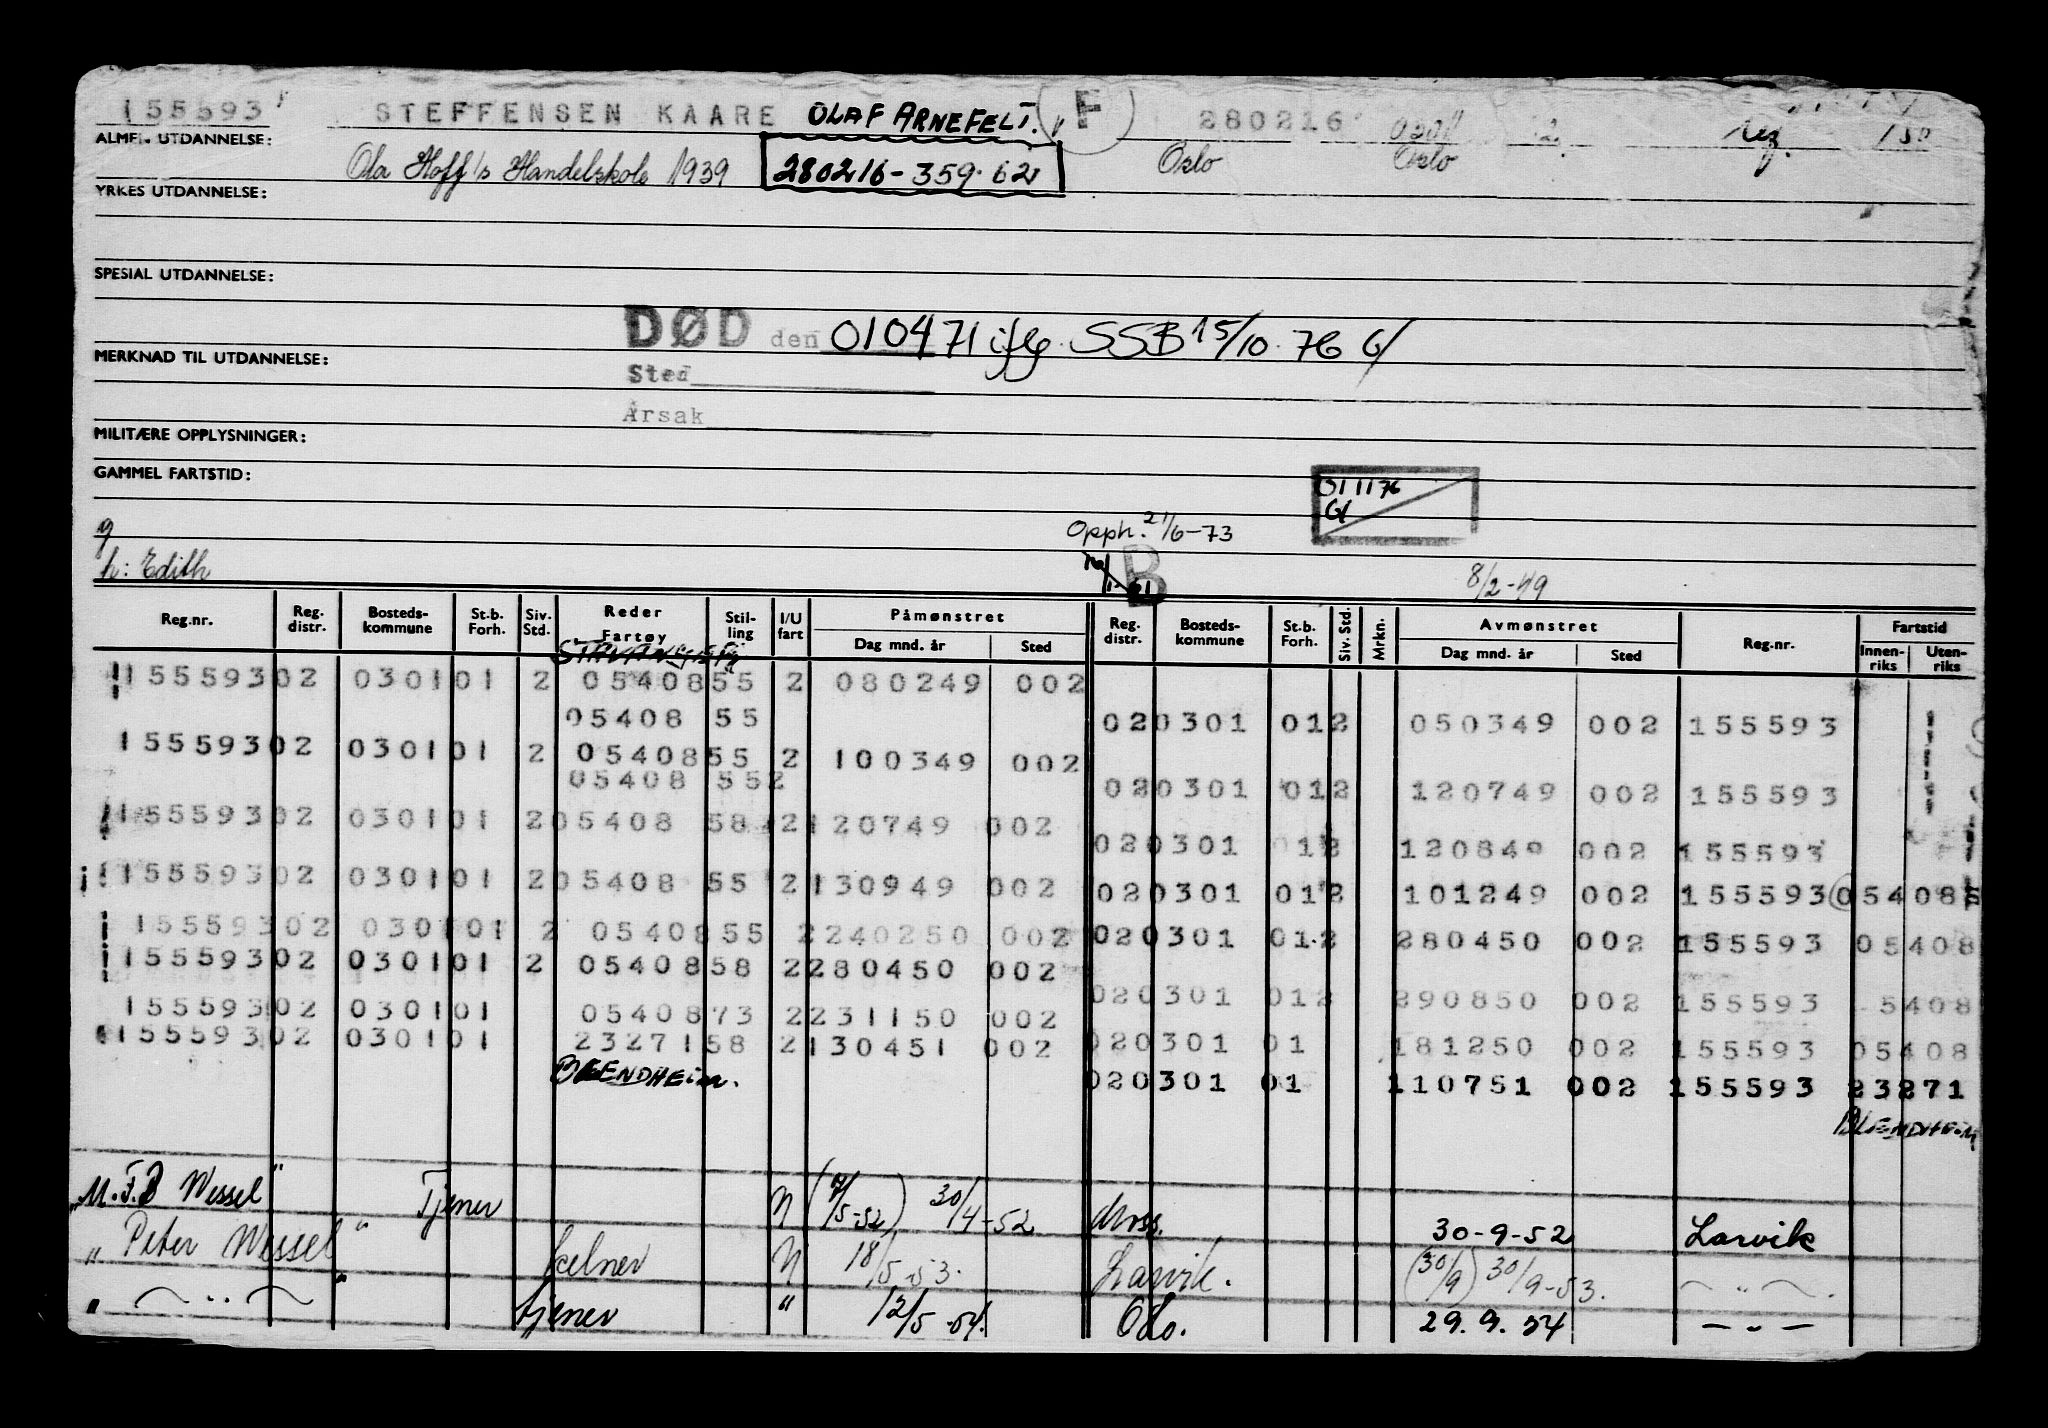 155593 STEFFENSEN KAARE OLAF ARNEFELT. F 280216
ALMEN UTDANNELSE: Ola Hoff's Handelskole 1939 280216-359.62 Oslo Oslo
YRKES UTDANNELSE:
SPESIAL UTDANNELSE:
DØD den 010471 iflg. SSB 15/10.76 G/
MERKNAD TIL UTDANNELSE:
Sted
Årsak
MILITÆRE OPPLYSNINGER:
GAMMEL FARTSTID:
011176
G/
g
Opph. 21/6-73
h: Edith B 8/2-49
Reg.nr. Reg. distr. Bosteds-kommune St.b. Forh. Siv. Std. Reder Fartøy Stil-ling I/U fart Påmønstret Dag mnd. år Sted Reg. distr. Bosteds-kommune St.b. Forh. Siv. Std. Mrkn. Avmønstret Dag mnd. år Sted Reg.nr. Fartstid Innen-riks Uten-riks
155593 02 0301 01 2 05408 55 2 080249 002
05408 55 02 0301 01 2 050349 002 155593
155593 02 0301 01 2 05408 55 2 100349 002
05408 55 2 02 0301 01 2 120749 002 155593
155593 02 0301 01 2 05408 58 2 120749 002
02 0301 01 2 120849 002 155593
155593 02 0301 01 2 05408 55 2 130949 002 02 0301 01 2 101249 002 155593 05408
155593 02 0301 01 2 05408 55 2 240250 002 02 0301 01 2 280450 002 155593 05408
155593 02 0301 01 2 05408 58 2 280450 002
02 0301 01 2 290850 002 155593 5408
155593 02 0301 01 05408 73 2 231150 002
155593 02 0301 01 23271 58 2 130451 002 02 0301 01 181250 002 155593 05408
BLENDHEIM. 02 0301 01 110751 002 155593 23271
BLENDHEIM
"M.F.B Wessel" Tjener N (7/5-52) 30/4-52 Moss. 30-9-52 Larvik
"Peter Wessel" kelner N 18/5-53. Larvik. (30/9) 30/9-53. — " —.
" — " — " tjener " 12/5-54. Oslo. 29.9.54 — " —